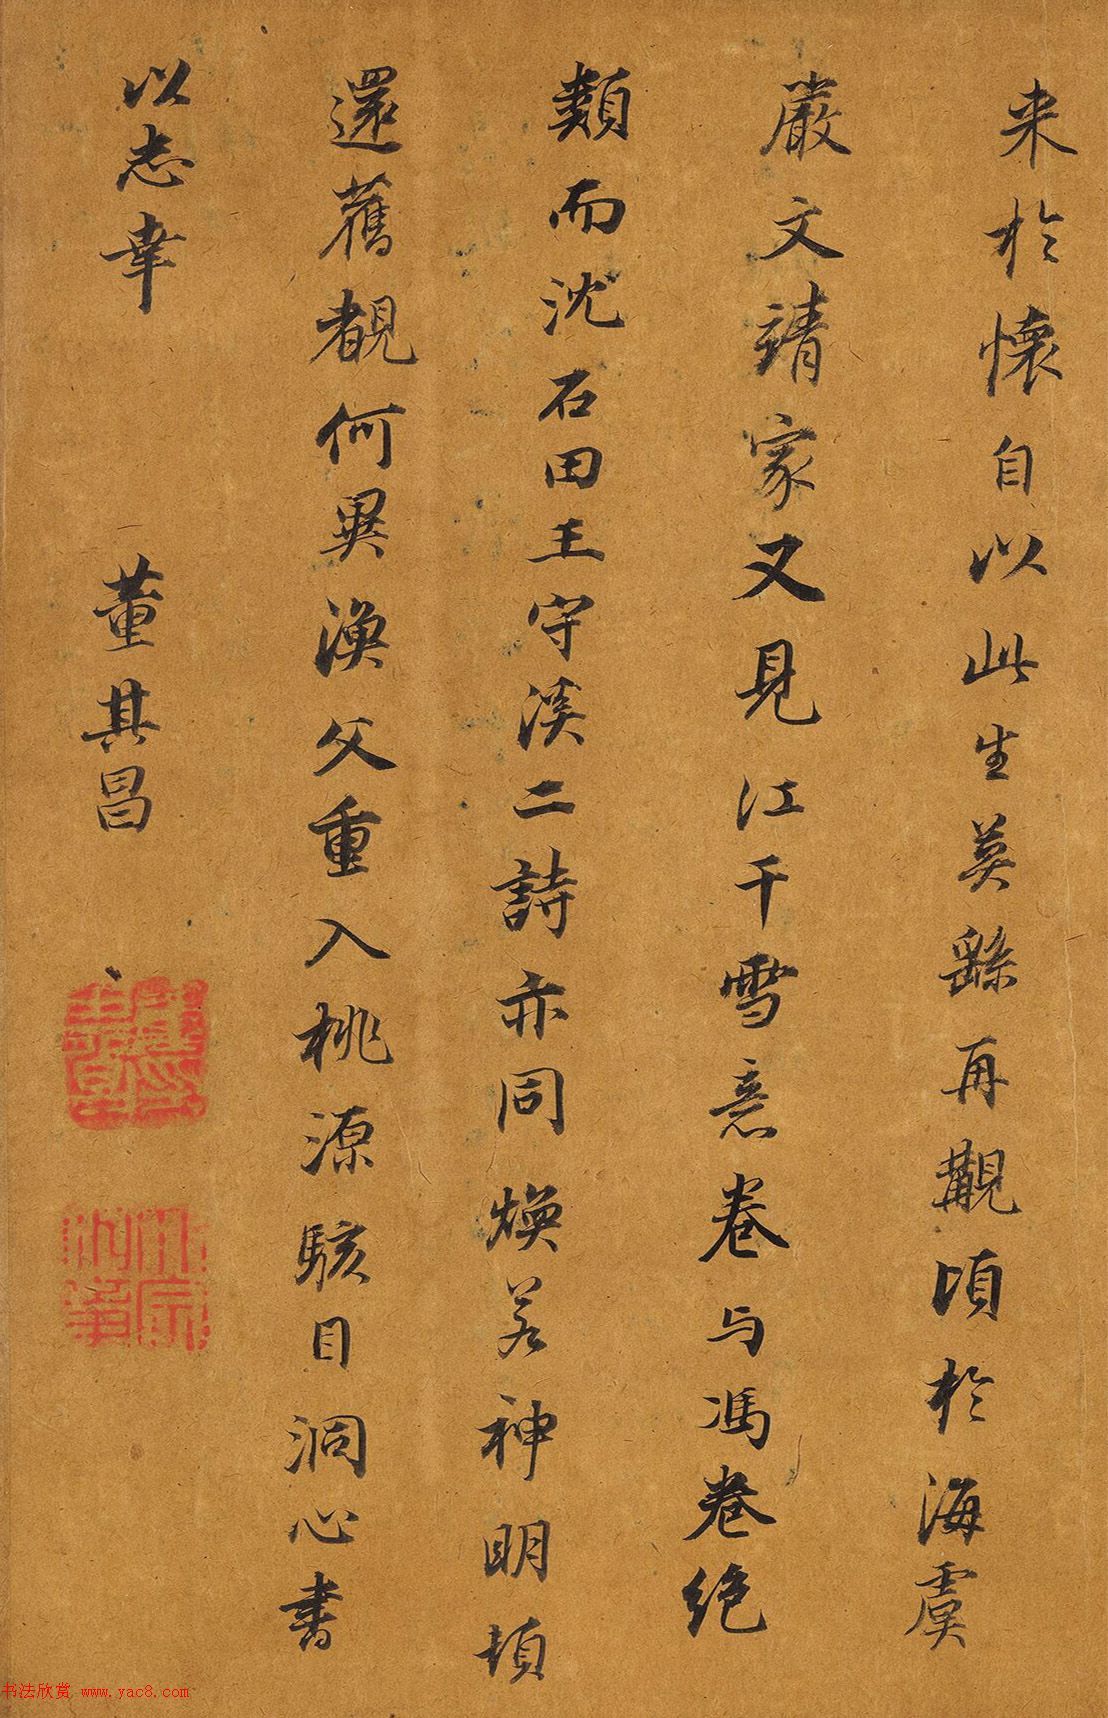 来於懷自以此生莫繇再觀頃於海虞
嚴文靖家又見江干雪意卷与馮卷絶
類而沈石田王守溪二詩亦同煥若神明頓
還舊觀何異漁父重入桃源駭目洞心書
以志幸 董其昌
书法欣赏 www.yac8.com